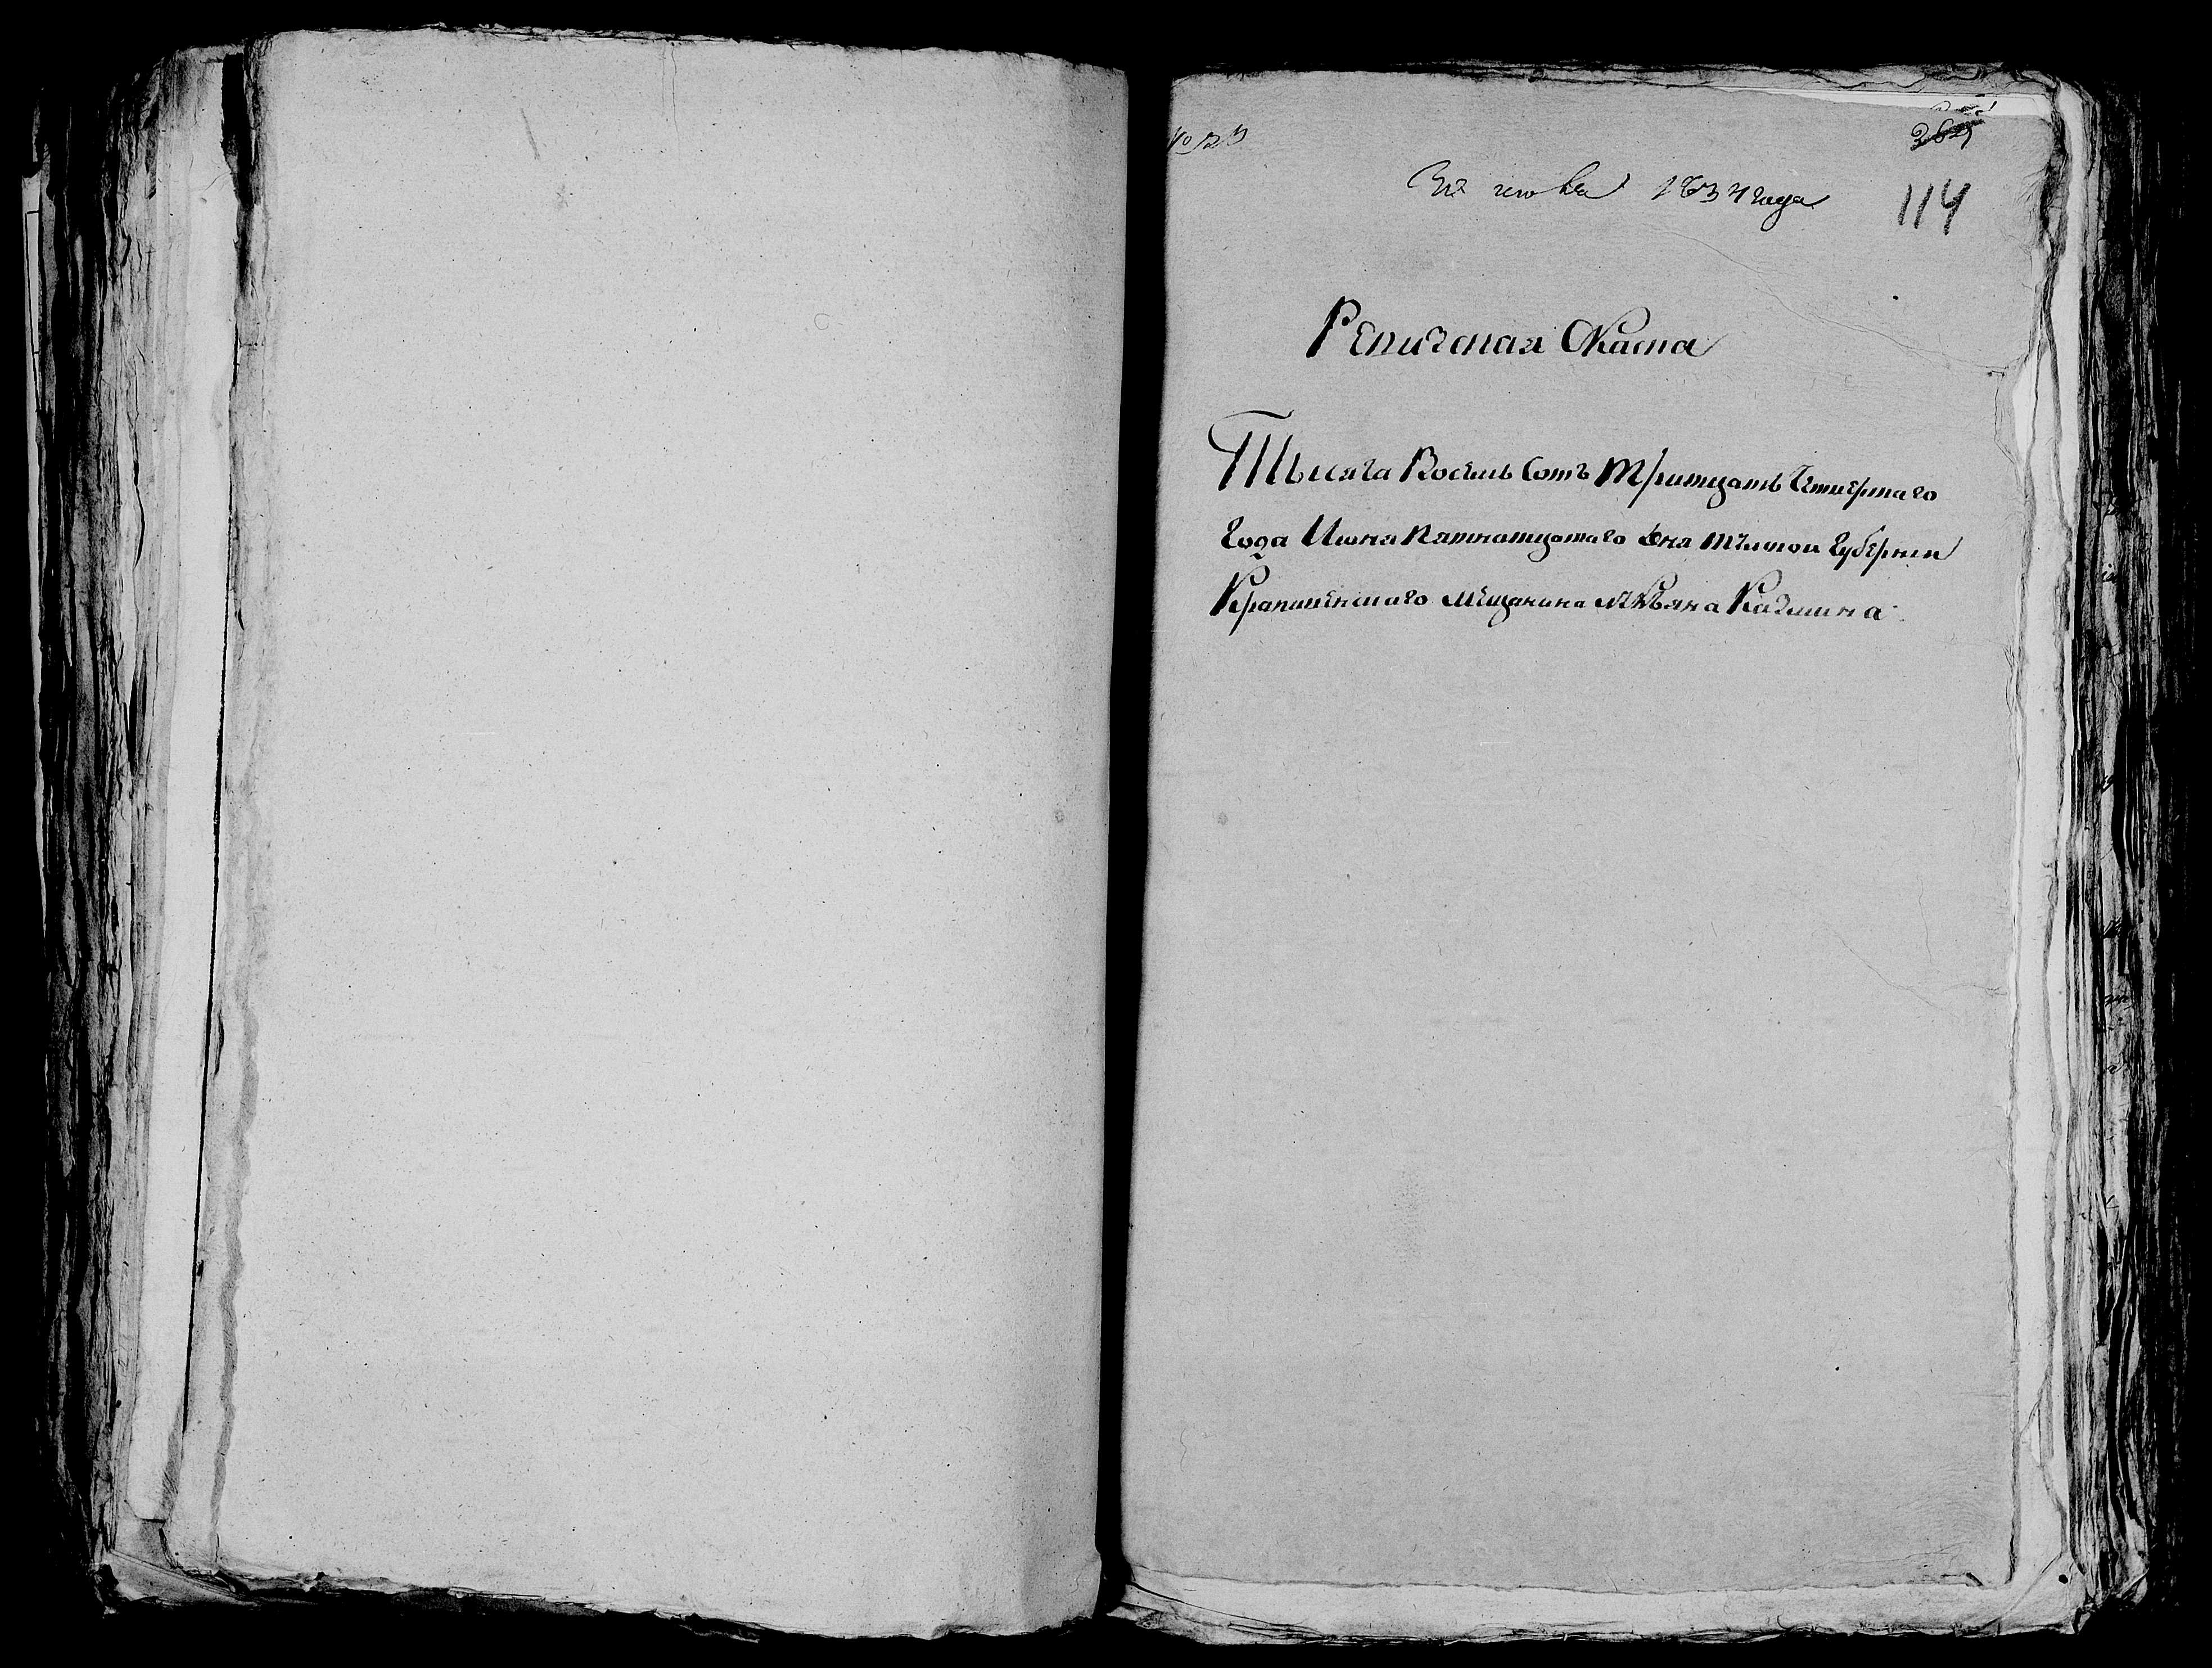 No 123
22 июня 1834 года
114
Ревиская Скаска
Тысяча Восемь Сотъ тритцать Четвертаго
Года Июня пятнатцатаго дня тульской губернии
Крапивенскаго мещанина